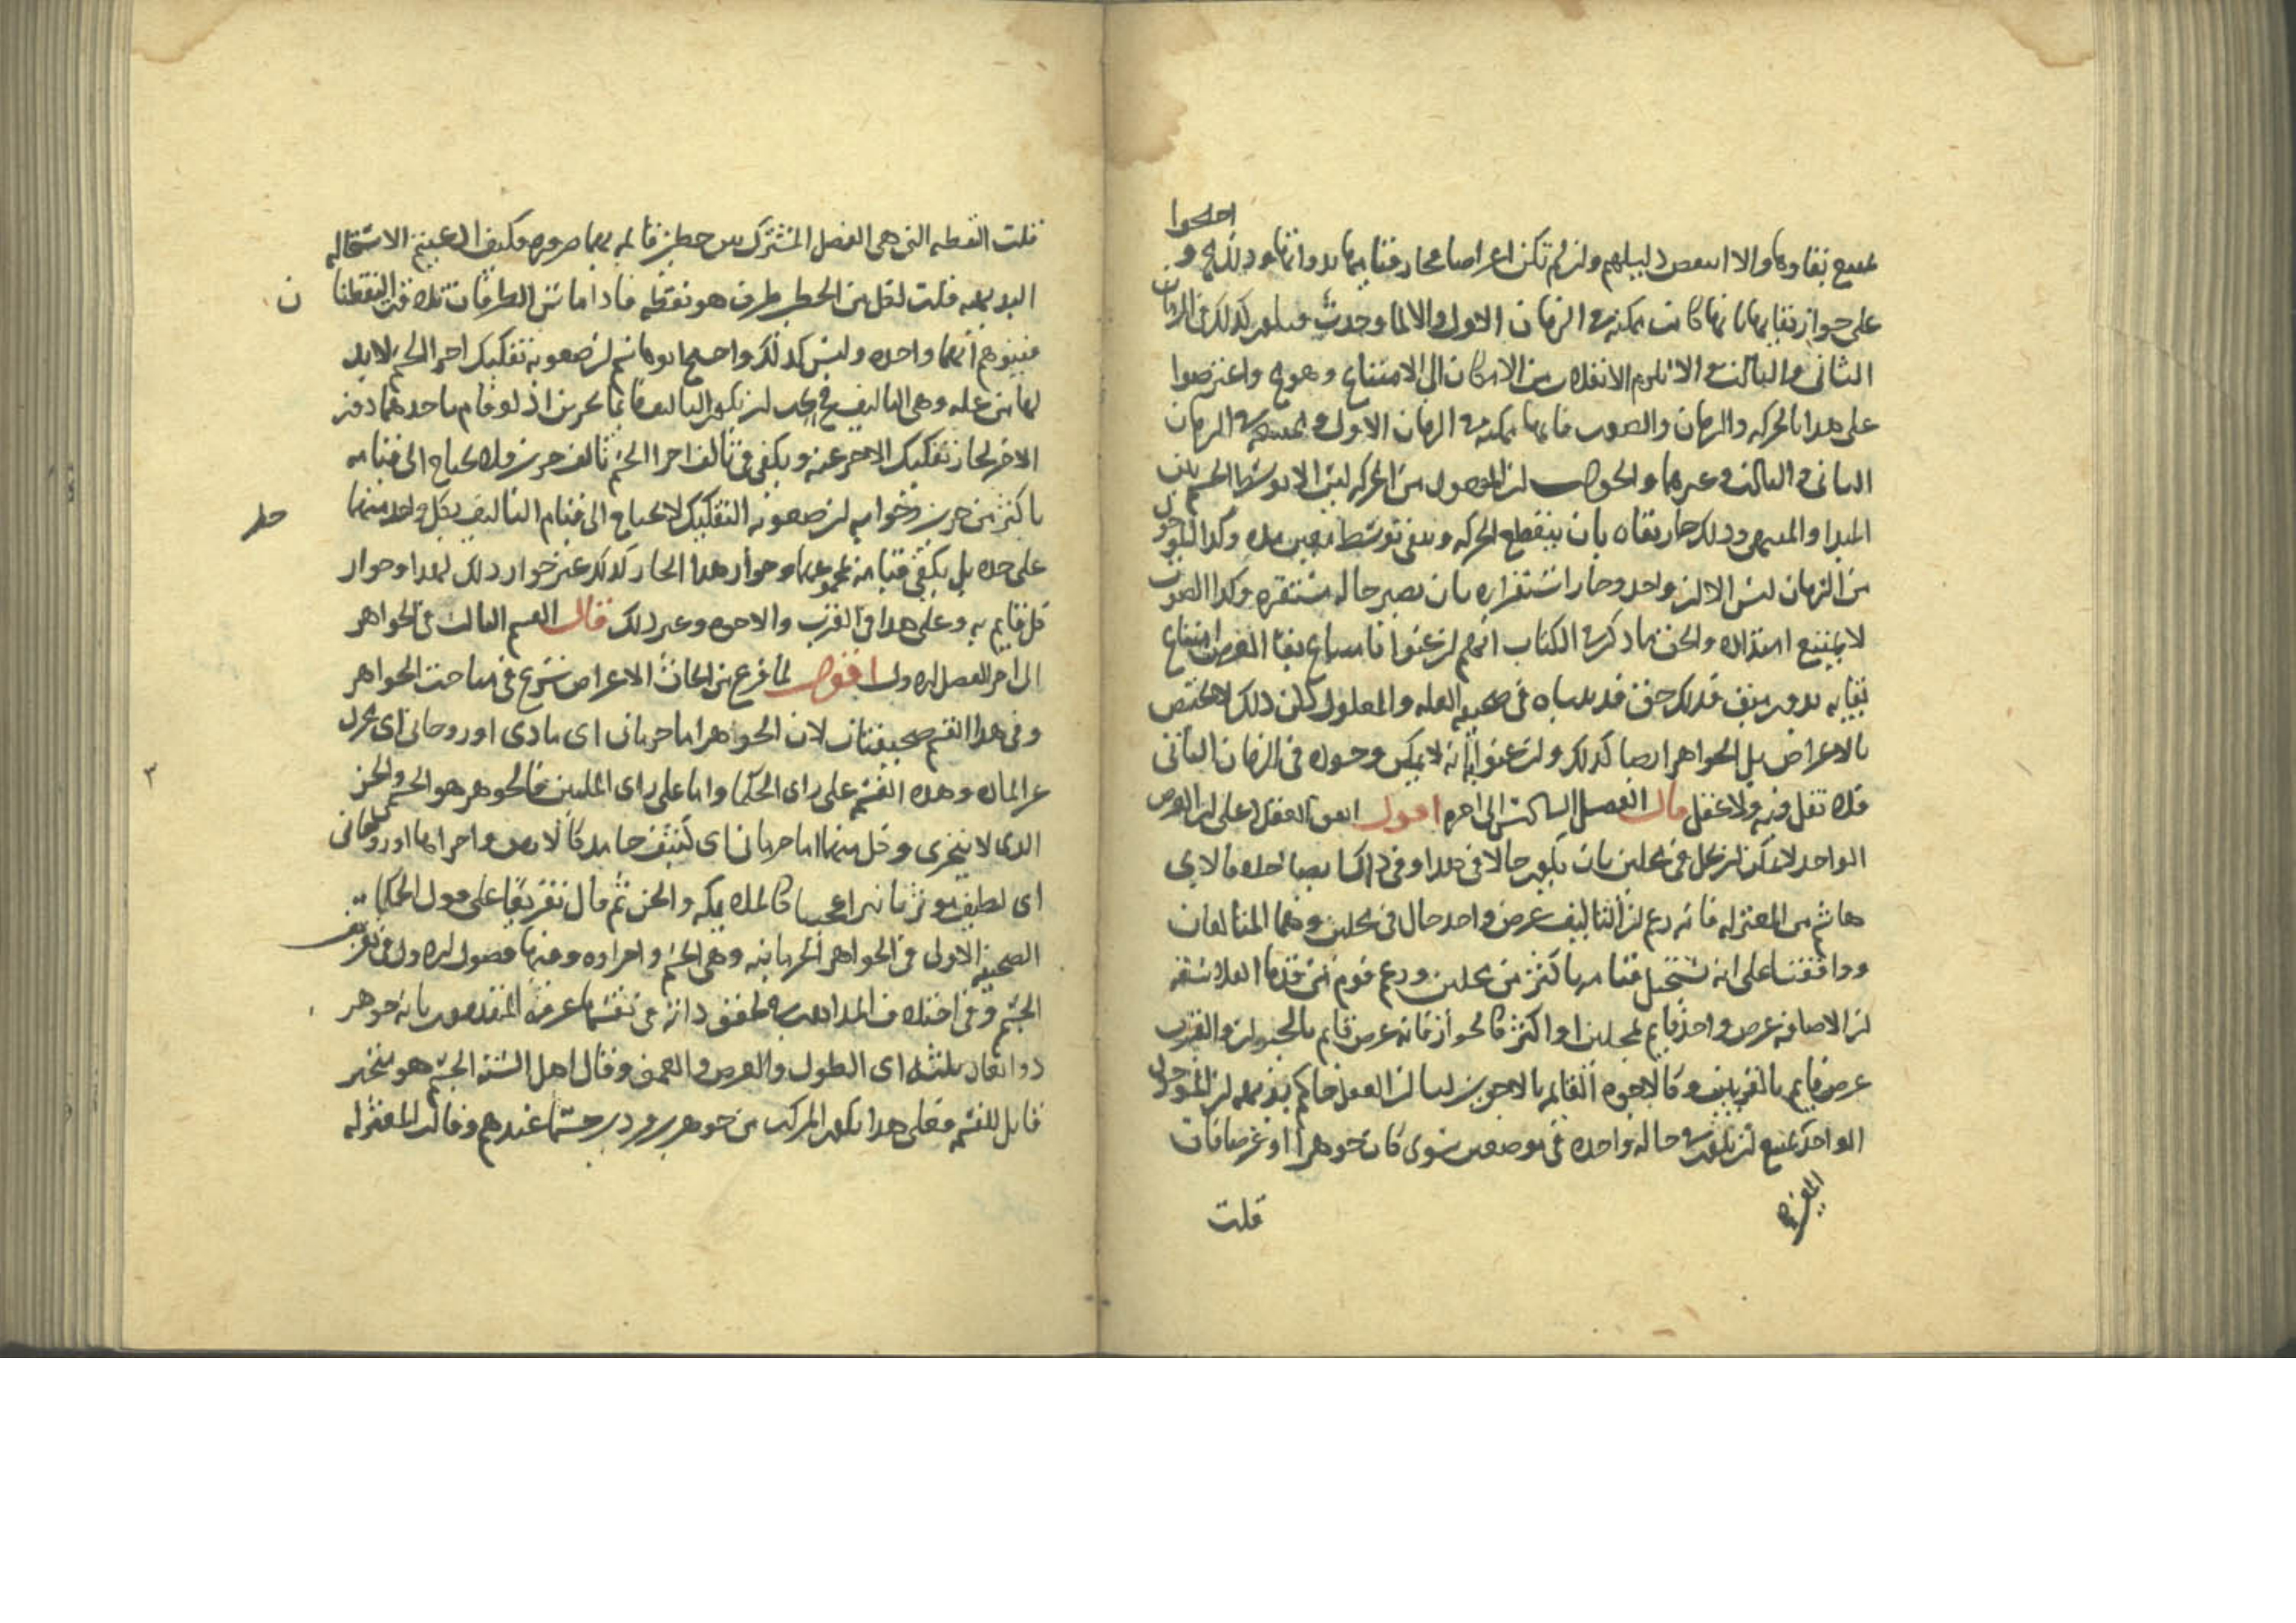 احتجوا
على جواز بقائها بانها كانت ممكنة في الزمان الاول والا لما وجدت فيكون كذلك في الزمان
الثاني والثالث والا يلزم الانقلاب من الامكان الى الامتناع وهو مح واعترضوا
على هذا بالحركة والزمان والصوت فانها ممكنة في الزمان الاول وممتنعة في الزمان
الثاني والثالث وغيرهما والجواب ان الموجود من الحركة ليس الا توسط الجسم بين
المبدا والمنتهى وذلك جاز بقاه بان ينقطع الحركة ويبقى توسط معين
من الزمان ليس الا الان واحد وجاز استقراره بان يصير حاله مستقره وكذا الصوت
لا يمتنع امتداده والحق ما ذكر في الكتاب انهم ان عنوا بامتناع بقا العرض امتناع
بقايه بدون مبق فذلك حق قد بيناه في صحيفه العله والمعلول لكن ذلك لا يختص
بالاعراض بل الجواهر ايضا كذلك وان عنوا انه لا يمكن وجوده في الزمان الثاني
فلا نقل فيه ولا عقل قال الفصل السادس الى اخره اقول اتفق العقلا على ان العرض
الواحد لا يمكن ان يحل في محلين بان يكون حالا في هذا وفي ذاك ايضا خلافا لابي
هاشم من المعتزله فانه زعم ان التاليف عرض واحد حال في محلين وهما المتالفان
ووافقنا على انه يستحيل قيامه باكثر من محلين وزعم قوم من قدما الفلاسفه
ان الاضافه عرض واحد قايم بمحلين او اكثر كالجوار فانه عرض قايم بالجارين والقرب
عرض قايم بالقريبين وكالاخوه القايمه بالاخوين لنا ان العقل حاكم بديهه ان الموجود
الواحد يمتنع ان يكون في حاله واحده في موضعين سوى كان جوهرا او عرضا فان
قلت
قلت النقطه التي هي الفصل المشترك بين خطين قايمه بهما ضروره فكيف ادعيتم الاستحاله
البديهيه قلت لكل من الخطين طرف هو نقطه فاذا تماس الطرفان تلاقت النقطتان
فيتوهم انهما واحده وليس كذلك واحتج ابو هاشم ان صعوبه تفكيك اجزا الجسم لا بد
لها من عله وهي التاليف فيجب ان يكون التاليف قايما بجزين اذ لو قام باحدهما دون
الاخر لجاز تفكيك الاخر عنه ويكفي في تالف اجزا الجسم تالف جزين فلا يحتاج الى قيامه
باكثر من جزين وجوابه ان صعوبه التفكيك لا يحتاج الى قيام التاليف بكل واحد منهما
على حده بل يكفي قيامه بمجموعهما وجوار هذا الجار كذلك غير جوار ذلك لهذا وجوار
كل قايم به وعلى هذا في القرب والاخوه وغير ذلك قال القسم الثالث في الجواهر
الى اخر الفصل الاول اقول لما فرغ من ابحاث الاعراض شرع في مباحث الجواهر
وفي هذا القسم صحيفتان لان الجواهر اما جسماني اي مادي او روحاني اي مجرد
عن الماده وهذه القسم على راي الحكما واما على راي المليين فالجوهر هو الجسم والجز
الذي لا يتجزى وكل منهما اما جسماني اي كثيف جامد كالارض واجزائها او روحاني
اي لطيف يوثر تاثيرا عجيبا كالملايكه والجن ثم قال تفريعا على قول الحكما
الصحيفه الاولى في الجواهر الجسمانيه وهي الجسم واجزاوه وفيها فصول الاول في تعريف
الجسم وفي اختلاف المذاهب في تحقق ذاته في نفسها عرفه المتقدمون بانه جوهر
ذو ابعاد ثلثه اي الطول والعرض والعمق وقال اهل السنه الجسم هو متحيز
قابل للقسمه فعلى هذا يكون المركب من جوهرين فردين جسما عندهم وقالت المعتزله